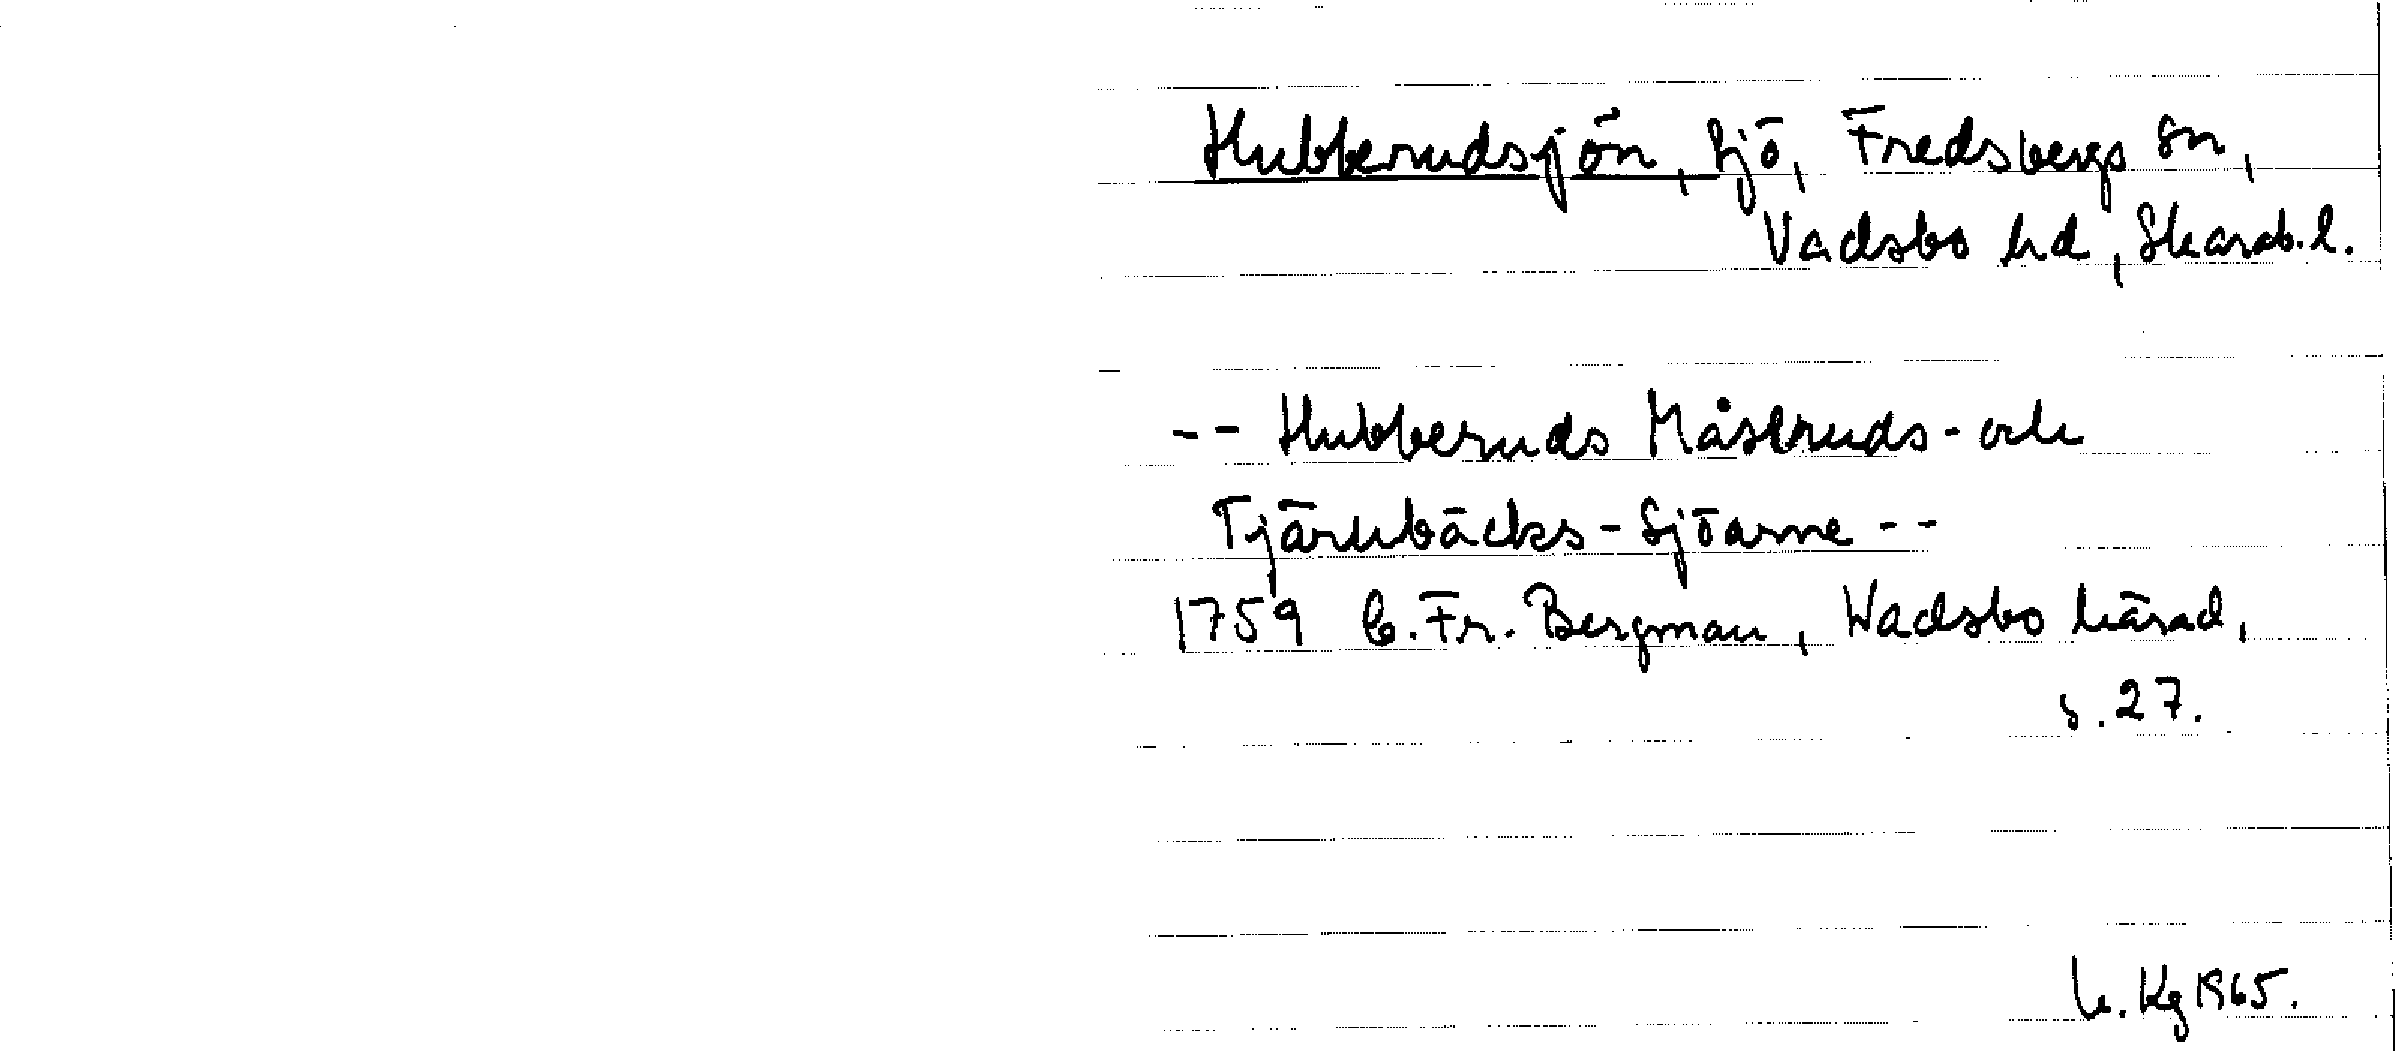 Hubberudsjön, sjö, Fredsbergs sn,
Vadsbo hd, Skarab.l.
-- Hubberuds Måseruds- och
Tjärnbäcks-Sjöarne --
1759 C. Fr. Bergman, Wadsbo härad,
s. 27.
Kg 1965.